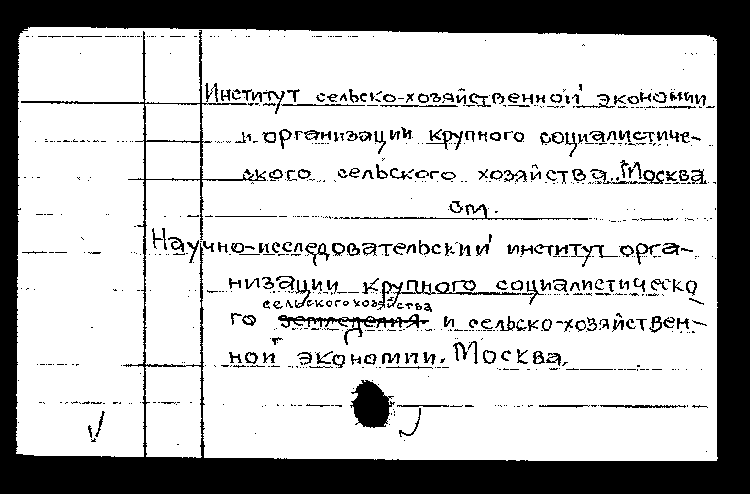 Институт сельско-хозяйственной экономии
и организации крупного социалистиче-
ского сельского хозяйства. Москва
см.
Научно-исследовательский институт орга-
низации крупного социалистическо
сельского хозяйства
го земледелия и сельско-хозяйствен-
ной экономии. Москва.